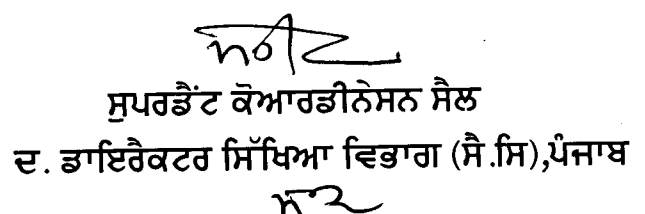 ਸੁਪਰਡੈਂਟ ਕੋਆਰਡੀਨੇਸਨ ਸੈਲ
ਦ. ਡਾਇਰੈਕਟਰ ਸਿੱਖਿਆ ਵਿਭਾਗ (ਸੈ.ਸਿ),ਪੰਜਾਬ